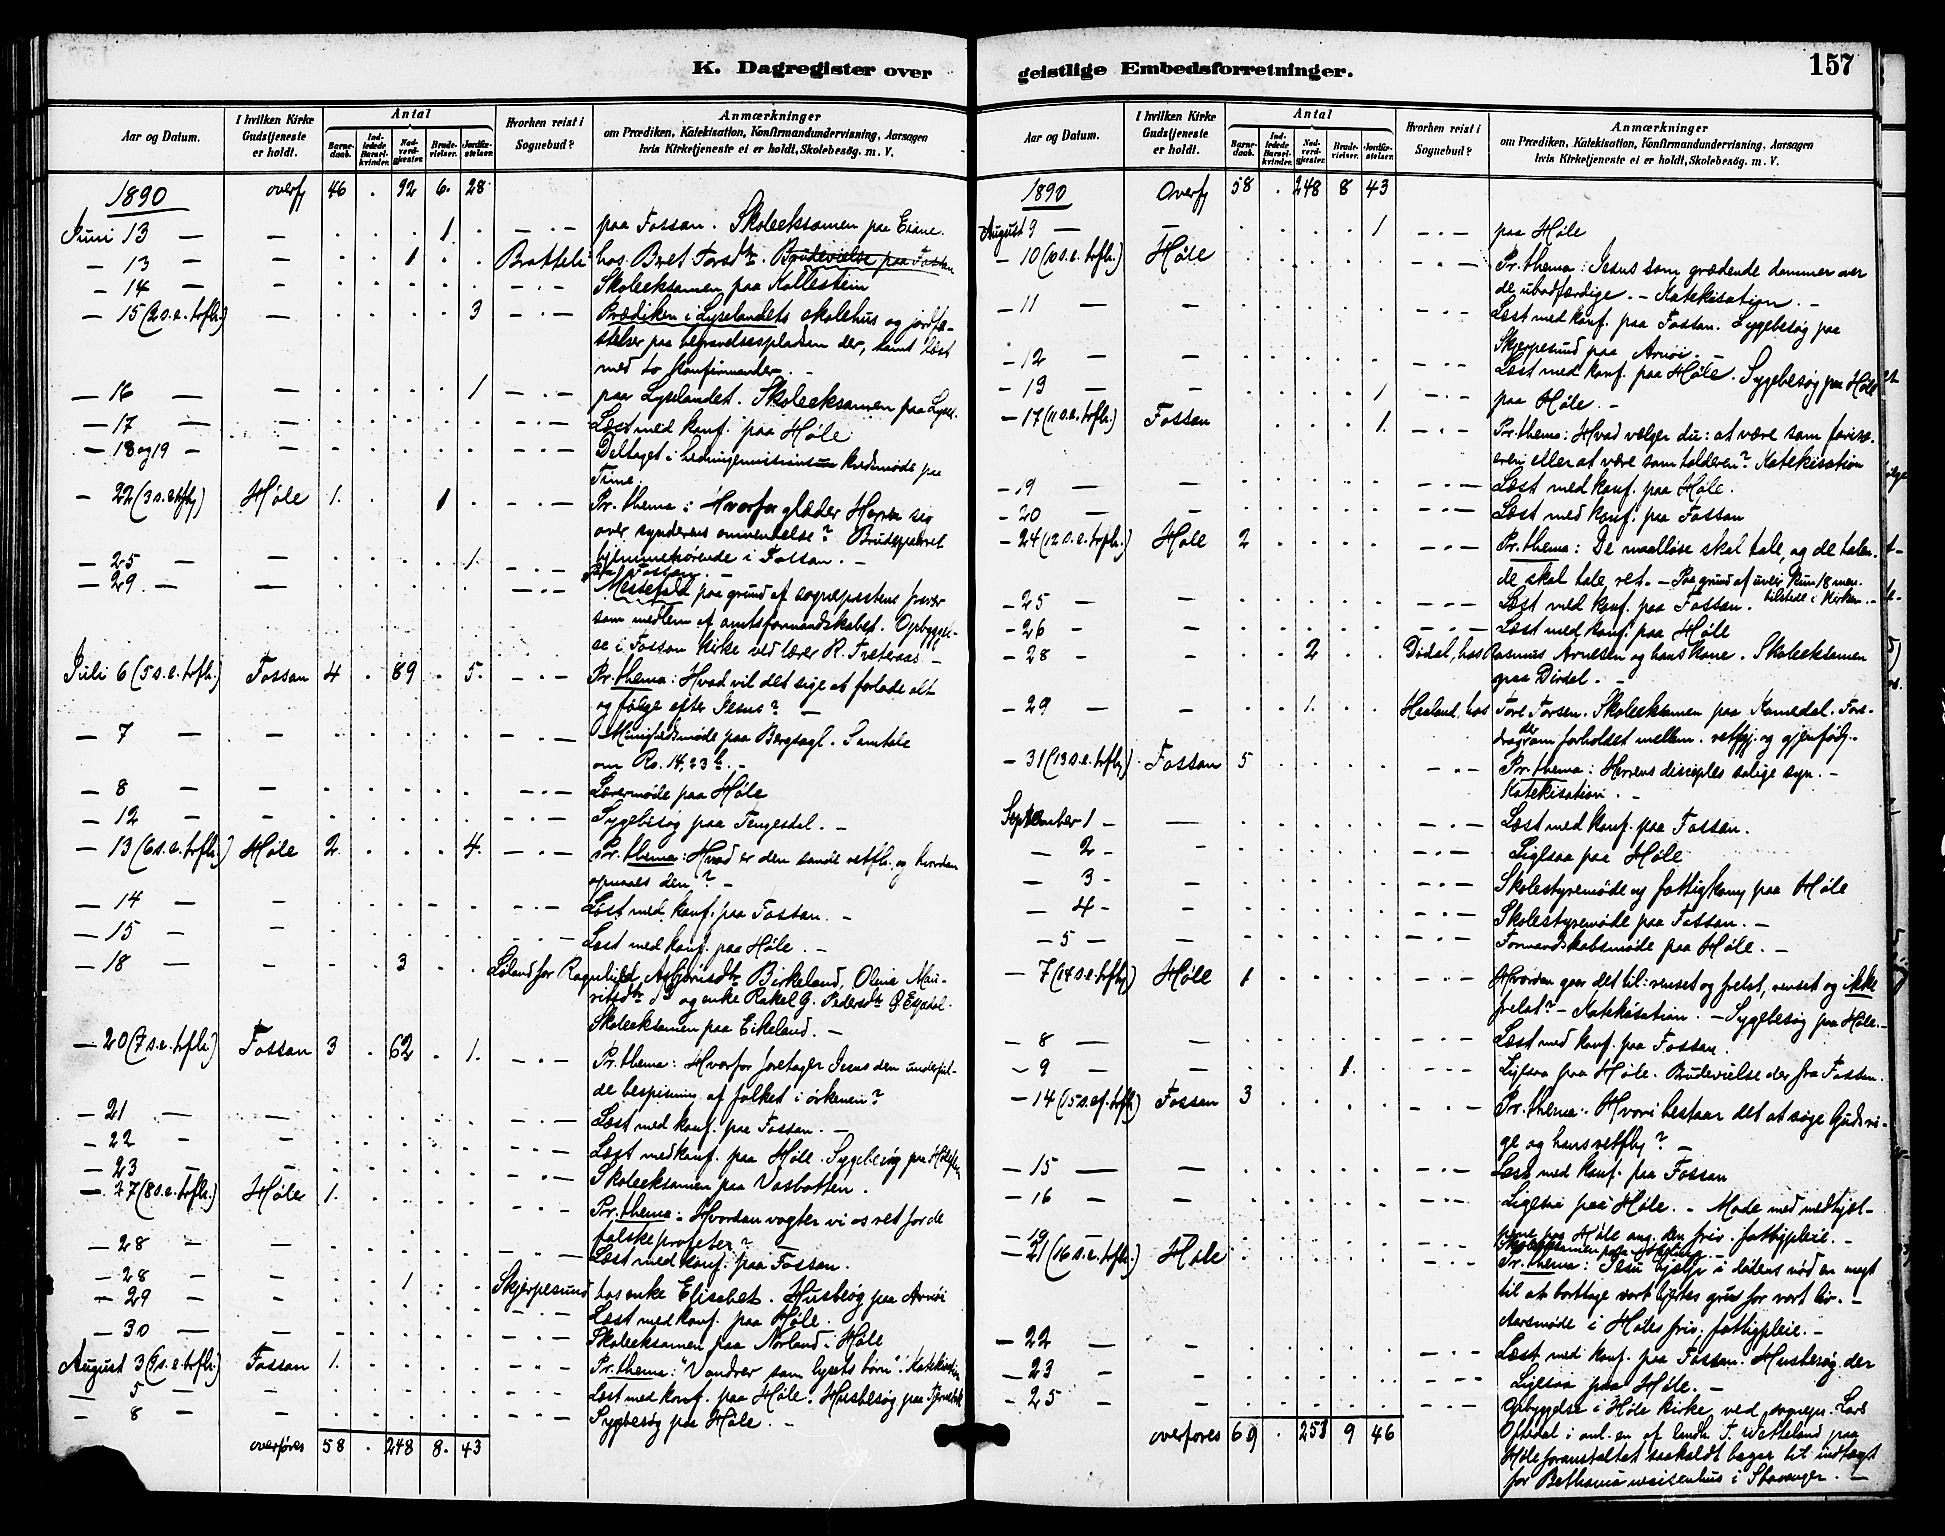 K. Dagregister over
Aar og Datum.
I hvilken Kirke Gudstjeneste er holdt.
Antal
Barnedaab.
Indledede Barselkvinder.
Nadverdgjester.
Brudevielser.
Jordfæstelser.
Hvorhen reist i Sognebud?
Anmærkninger
om Prædiken, Katekisation, Konfirmandundervisning, Aarsagen
hvis Kirketjeneste ei er holdt, Skolebesøg. m. V.
1890 overf 46 . 92 6. 28
Juni 13 — — 1 paa Fossan. Skoleeksamen paa Eiane.
— 13 — — 1 Bratteli hos Bret Torsdtr. Brudevielse paa Fossan
— 14 — — Skoleeksamen paa Kallestein
— 15 (2 s.e. trflh.) — 3 Prædiken i Lyselandets skolehus og jordfæ-
stelser paa begravelsespladsen der, samt læst
med to konfirmander. —
— 16 — — 1 paa Lyselandet. Skoleeksamen paa Lysel.
— 17 — — Læst med konf. paa Høle
— 18 og 19 — — Deltaget i hedningemissions kredsmøde paa
Time.
— 22 (3 s.e. trflh) Høle 1. 1 Pr. thema: Hvorfor glæder Herren sig
over synderens omvendelse? Brudeparret
hjemmehørende i Fossan. —
— 25 — — 1. paa Fossan. —
— 29 — — Messefald paa grund af sognepræstens fravær
som medlem af amtsformandskabet. Opbyggel-
se i Fossan kirke ved lærer R. Tveteraas —
Juli 6 (5 s.e. trflh.) Fossan 4 . 89 . 5. Pr. thema: Hvad vil det sige at forlade alt
og følge efter Jesus? —
— 7 — — Menighedsmøde paa Bergsagl. Samtale
om Ro. 14, 23 b. —
— 8 — — Læremøde paa Høle
— 12 — — Sygebesøg paa Tengesdal. —
— 13 (6 s.e. trflh.) Høle 2 4. Pr. thema: Hvad er den sande retfh. og hvordan
opnaaes den? —
— 14 — — Læst med konf. paa Fossan. —
— 15 — — Læst med konf. paa Høle. —
— 18 — — 3 Løland for Ragnhild Asbjørnsdtr Birkeland, Olina Mau-
ritsdtr do og enke Rakel G. Pedersdtr Ø Espedal.
Skoleeksamen paa Eikeland. —
— 20 (7 s.e. trflh.) Fossan 3 . 62 . 1. Pr. thema: Hvorfor foretager Jesus den underful-
de bespisning af folket i ørkenen?
— 21 — — Læst med konf. paa Fossan. —
— 22 — — Læst med konf. paa Høle. Sygebesøg paa
— 23 — — Skoleeksamen paa Vasbotten.
— 27 (8 s.e. trflh.) Høle 1. Pr. thema: Hvordan vogter vi os ret for de
falske profeter? —
— 28 — — Læst med konf. paa Fossan.
— 28 — — 1 Skjørpesund hos enke Elisabet. Husbesøg paa Arnøi
— 29 — — Læst med konf. paa Høle.
— 30 — — Skoleeksamen paa Norland i Høle
August 3 (9 s.e. trflh.) Fossan 1. Pr. thema: "Vandrer som lysets børn". Katekisation
— 5 — — Læst med konf. paa Høle. Husbesøg paa
— 8 — — Sygebesøg paa Høle. —
overføres 58 . 248 8. 43
geistlige Embedsforretninger.
157
Aar og Datum.
I hvilken Kirke Gudstjeneste er holdt.
Antal
Barnedaab.
Indledede Barselkvinder.
Nadverdgjester.
Brudevielser.
Jordfæstelser.
Hvorhen reist i Sognebud?
Anmærkninger
om Prædiken, Katekisation, Konfirmandundervisning, Aarsagen
hvis Kirketjeneste ei er holdt, Skolebesøg. m. V.
1890 Overf 58 . 248 8 43
August 9 — — 1 paa Høle
— 10 (10 s.e. trflh.) Høle Pr. thema: Jesus som grædende dommer over
de ubodfærdige. — Katekisation. —
— 11 — — Læst med konf. paa Fossan. Sygebesøg paa
Skjørpesund paa Arnøi. —
— 12 — — Læst med konf. paa Høle. Sygebesøg paa Høle
— 13 — — 1 paa Høle. —
— 17 (11 s.e. trflh.) Fossan 1. Pr. thema: Hvad vælger du: at være som farisæ-
eren eller at være som tolderen? Katekisation
— 19 — — Læst med konf. paa Høle.
— 20 — — Læst med konf. paa Fossan
— 24 (12 s.e. trflh.) Høle 2 Pr. thema: De maalløse skal tale, og de talen-
de skal tale ret. — Paa grund af uveir kun 18 men.
tilstede i kirken. —
— 25 — — Læst med konf. paa Fossan.
— 26 — — Læst med konf. paa Høle
— 28 — — 2 Dirdal, hos Rasmus Arnesen og hans kone. Skoleeksamen
paa Dirdal. —
— 29 — — 1. Haaland, hos Tore Torsen. Skoleeksamen paa Ramsdal. Fore-
drag om forholdet mellem retfgj. og gjenfødg. —
— 31 (13 s.e. trflh) Fossan 5 Pr. thema: Herrens disciples salige syn. —
Katekisation. —
September 1 — — Læst med konf. paa Fossan.
— 2 — — Ligesaa paa Høle
— 3 — — Skolestyremøde og fattigkom. paa Høle
— 4 — — Skolestyremøde paa Fossan. —
— 5 — — Formandskabsmøde paa Høle. —
— 7 (14 s.e. trflh) Høle 1 Hvordan gaar det til: renset og frelst, renset og ikke
frelst? — Katekisation. — Sygebesøg paa Høle. —
— 8 — — Læst med konf. paa Fossan.
— 9 — — 1. Ligesaa paa Høle. Brudevielse der fra Fossan.
— 14 (15 s.ef. trflh) Fossan 3 Pr. thema: Hvori bestaar det at søge Guds ri-
ge og hans retfh? —
— 15 — — Læst med konf. paa Fossan
— 16 — — Ligesaa paa Høle. — Møde med medhjæl-
perne paa Høle ang. den friv. fattigpleie. —
— 19 — Skoleeksamen paa
— 21 (16 s.e. trflh.) Høle Pr. thema: Jesu hjælp i dødens nød en magt
til at borttage vort hjertes gru for vort liv. —
Aarsmøde i Høles friv. fattigpleie. —
— 22 — — Læst med konf. paa Fossan. Husbesøg der
— 23 — — Ligesaa paa Høle. —
— 25 — — Opbyggelse i Høle kirke ved sognepr. Lars
Oftedal i anl. en af landh. T. Watteland paa
Høle foranstaltet saakaldt bazar til indtægt
for Bethania waisenhus i Stavanger. —
overføres 69 . 251 9 46